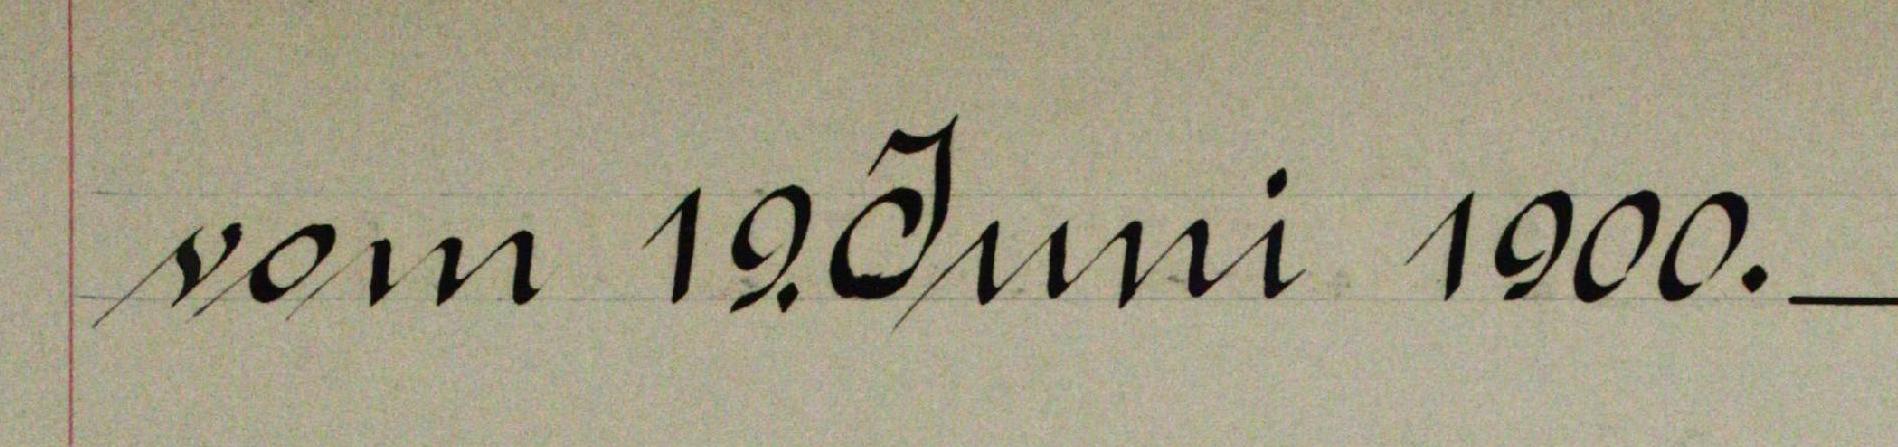 vom 19. Juni 1900.